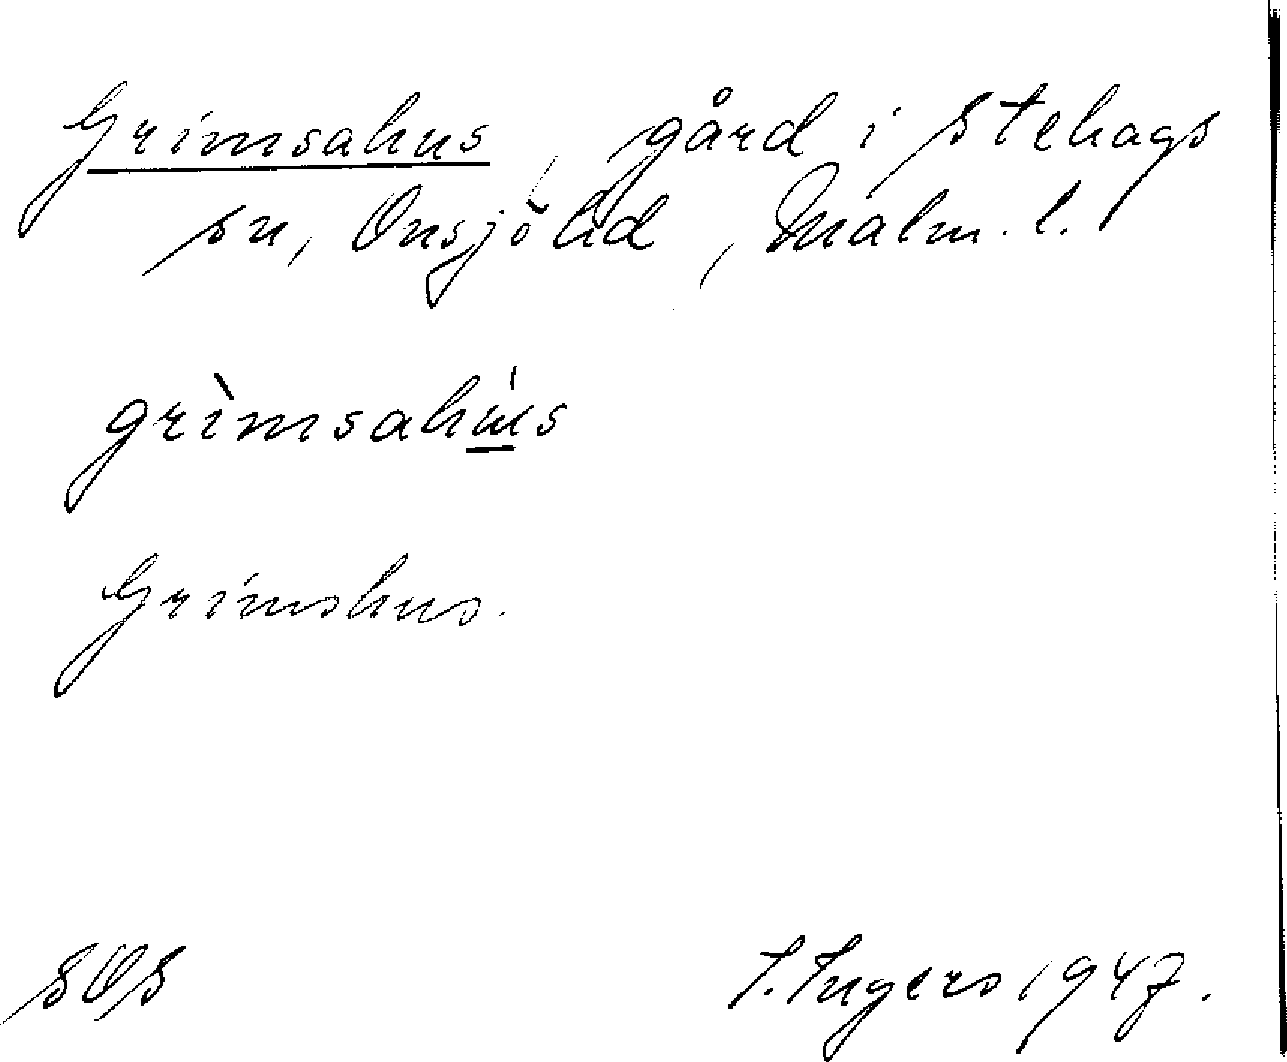 Grimsahus, gård i Stehags
sn, Onsjö hd, Malm. l.
grìmsahús
Grimshus.
SOS
I. Ingers 1947.